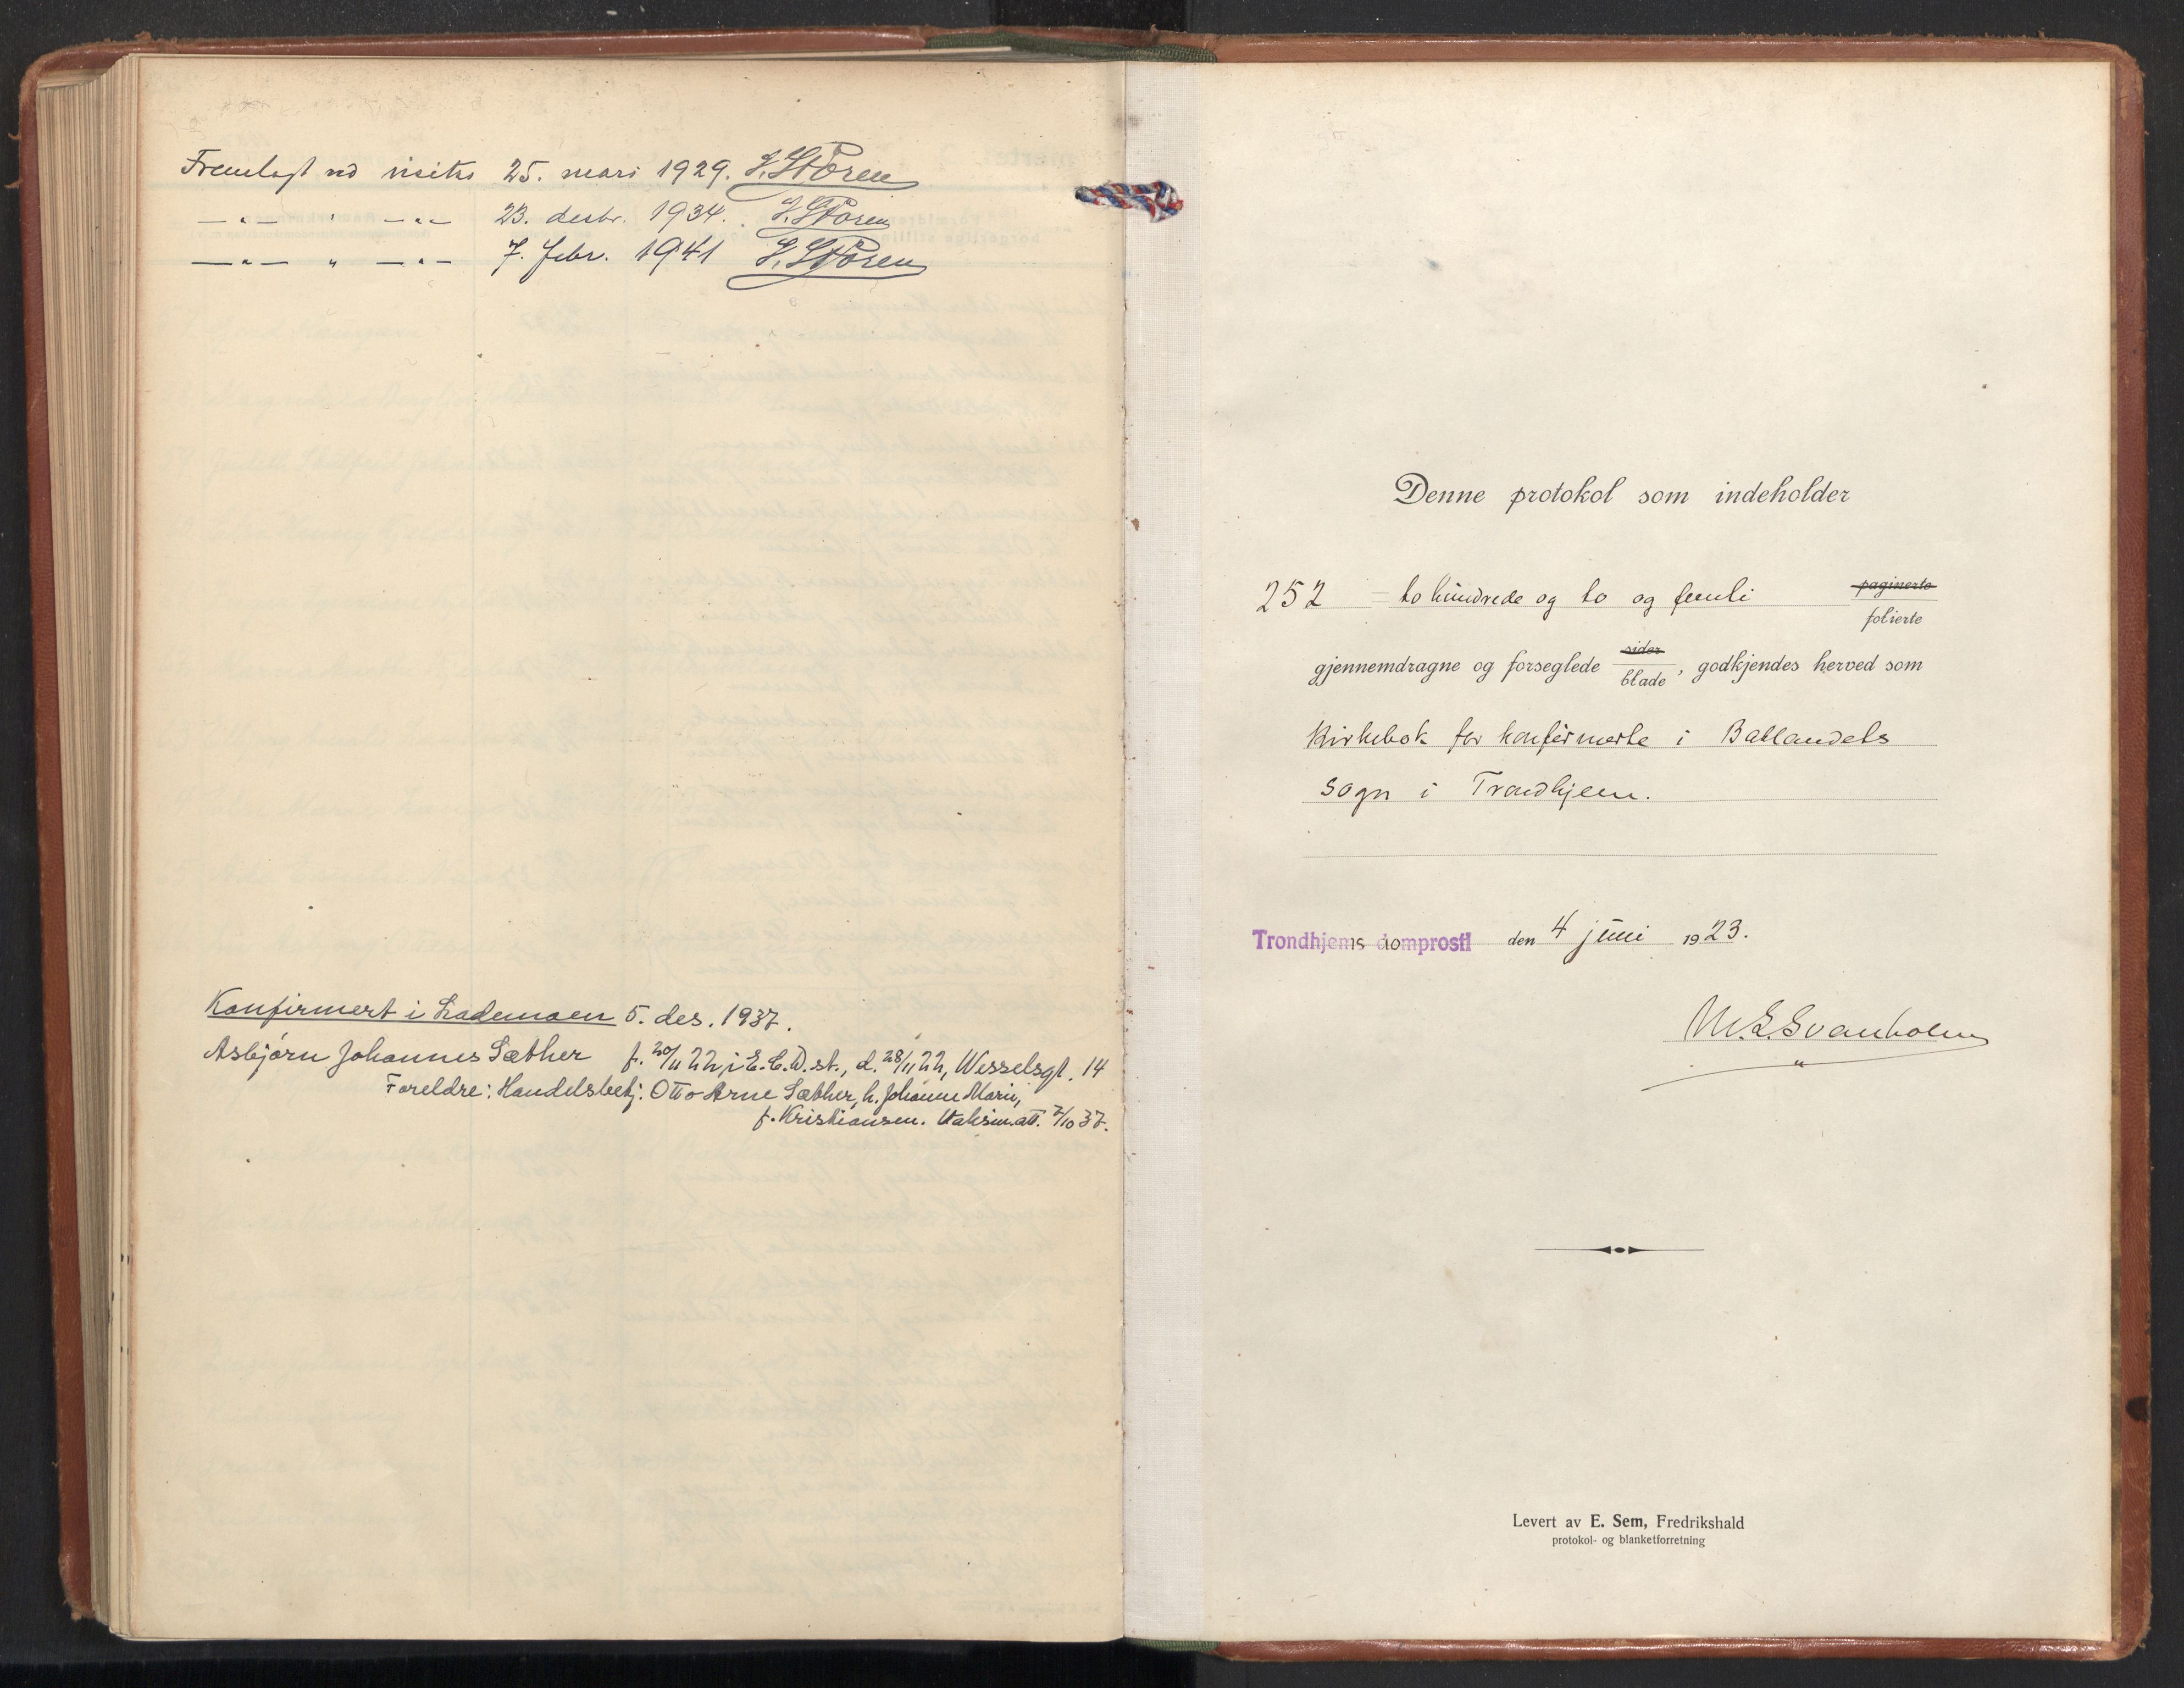 Fremlagt ved visitas 25. mars 1929. J. Støren
—"— " —"— 23. desbr. 1934. J. Støren
—"— " —"— 7. febr. 1941 J. Støren
Konfirmert i Lademoen 5. des. 1937.
Asbjørn Johannes Sæther f. 20/11 22 i E.C.D.st., d. 28/11 22, Wesselsgt. 14
Foreldre: Handelsbetj. Otto Arne Sæther, h. Johanne Marie,
f. Kristiansen. Vaksin.att. 2/10 37.
Denne protokol som indeholder
252 = to hundrede og to og femti paginerte
folierte
gjennemdragne og forseglede sider
blade, godkjendes herved som
Kirkebok for konfirmerte i Baklandets
sogn i Trondhjem.
Trondhjems domprosti den 4 juni 1923.
M. E. Svanholm
Levert av E. Sem, Fredrikshald
protokol- og blanketforretning